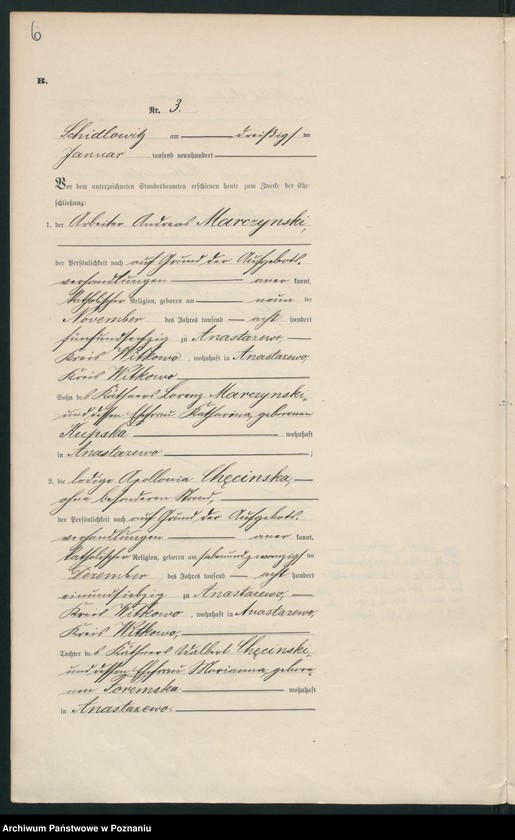 6
B.
Nr. 3.
Schidlowitz am dreißigsten
Januar tausend neunhundert
Vor dem unterzeichneten Standesbeamten erschienen heute zum Zwecke der Ehe-
schließung:
1. der Arbeiter Andreas Marczynski,
der Persönlichkeit nach auf Grund der Aufgebots-
verhandlungen aner kannt,
katholischer Religion, geboren am neunten
November des Jahres tausend acht hundert
fünfundsechzig zu Anastazewo,
Kreis Witkowo, wohnhaft in Anastazewo,
Kreis Witkowo
Sohn des Käthners Lorenz Marczynski
und dessen Ehefrau Katharina, geborenen
Kupska wohnhaft
in Anastazewo ;
2. die ledige Apollonia Chęcinska,
ohne besonderen Stand,
der Persönlichkeit nach auf Grund der Aufgebots-
verhandlungen aner kannt,
katholischer Religion, geboren am siebenundzwanzigsten
Dezember des Jahres tausend acht hundert
einundsiebzig zu Anastazewo,
Kreis Witkowo, wohnhaft in Anastazewo,
Kreis Witkowo,
Tochter des Käthners Adalbert Chęcinski,
und dessen Ehefrau Marianna, gebore-
nen Joremska wohnhaft
in Anastazewo.
Archiwum Państwowe w Poznaniu